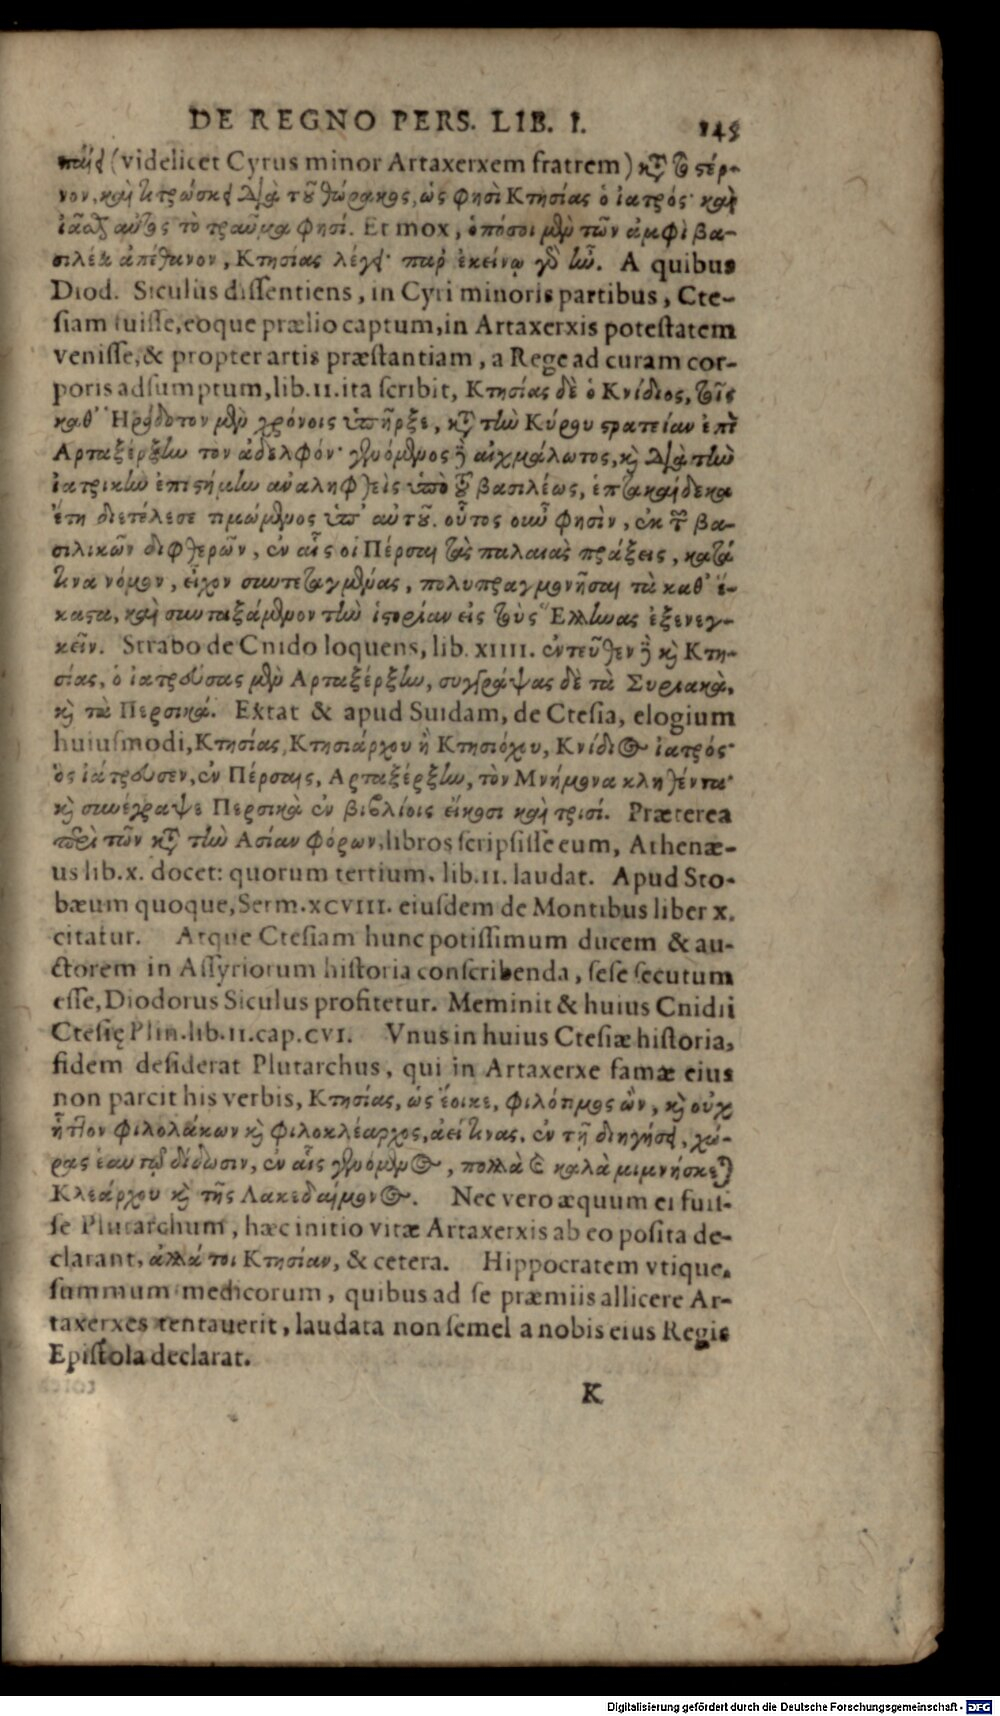 DE REGNO PERS. LIB. I. 145
παίει (videlicet Cyrus minor Artaxerxem fratrem) κατὰ τὸ στέρ-
νον, καὶ τιτρώσκει διὰ τοῦ θώρακος, ὡς φησὶ Κτησίας ὁ ἰατρός· καὶ
ἰᾶσθαι αὐτὸς τὸ τραῦμα φησί. Et mox, ὁπόσοι μὲν τῶν ἀμφὶ βα-
σιλέα ἀπέθανον, Κτησίας λέγει· παρ' ἐκείνῳ γὰρ ἦν. A quibus
Diod. Siculus dissentiens, in Cyri minoris partibus, Cte-
siam fuisse, eoque prælio captum, in Artaxerxis potestatem
venisse, & propter artis præstantiam, a Rege ad curam cor-
poris adsumptum, lib. II. ita scribit, Κτησίας δὲ ὁ Κνίδιος, τοῖς
καθ' Ἡρόδοτον μὲν χρόνοις ὑπῆρξε, κατὰ τὴν Κύρου στρατείαν ἐπὶ
Αρταξέρξην τὸν ἀδελφόν· γενόμενος δὲ αἰχμάλωτος, καὶ διὰ τὴν
ἰατρικὴν ἐπιστήμην ἀναληφθεὶς ὑπὸ τοῦ βασιλέως, ἑπτακαίδεκα
ἔτη διετέλεσε τιμώμενος ὑπ' αὐτοῦ. οὗτος οὖν φησὶν, ἐκ τῶν βα-
σιλικῶν διφθερῶν, ἐν αἷς οἱ Πέρσαι τὰς παλαιὰς πράξεις, κατά
τινα νόμον, εἶχον συντεταγμένας, πολυπραγμονῆσαι τὰ καθ' ἕ-
καστα, καὶ συνταξάμενον τὴν ἱστορίαν εἰς τοὺς Ἕλληνας ἐξενεγ-
κεῖν. Strabo de Cnido loquens, lib. XIIII. ἐντεῦθεν δὲ καὶ Κτη-
σίας, ὁ ἰατρεύσας μὲν Αρταξέρξην, συγγράψας δὲ τὰ Συριακὰ,
καὶ τὰ Περσικά. Extat & apud Suidam, de Ctesia, elogium
huiusmodi, Κτησίας, Κτησιάρχου ἢ Κτησιόχου, Κνίδιος ἰατρός·
ὃς ἰάτρευσεν, ἐν Πέρσαις, Αρταξέρξην, τὸν Μνήμονα κληθέντα·
καὶ συνέγραψε Περσικὰ ἐν βιβλίοις εἴκοσι καὶ τρισί. Præterea
περὶ τῶν κατὰ τὴν Ασίαν φόρων, libros scripsisse eum, Athenæ-
us lib. X. docet: quorum tertium, lib. II. laudat. Apud Sto-
bæum quoque, Serm. XCVIII. eiusdem de Montibus liber X.
citatur. Atque Ctesiam hunc potissimum ducem & au-
ctorem in Assyriorum historia conscribenda, sese secutum
esse, Diodorus Siculus profitetur. Meminit & huius Cnidii
Ctesię Plin. lib. II. cap. CVI. Vnus in huius Ctesiæ historia,
fidem desiderat Plutarchus, qui in Artaxerxe famæ eius
non parcit his verbis, Κτησίας, ὡς ἔοικε, φιλότιμος ὢν, καὶ οὐχ
ἧττον φιλολάκων καὶ φιλοκλέαρχος, ἀεί τινας, ἐν τῇ διηγήσει, χώ-
ρας ἑαυτῷ δίδωσιν, ἐν αἷς γενόμενος, πολλὰ καὶ καλὰ μιμνήσκεται
Κλεάρχου καὶ τῆς Λακεδαίμονος. Nec vero æquum ei fuis-
se Plutarchum, hæc initio vitæ Artaxerxis ab eo posita de-
clarant, ἀλλά τοι Κτησίαν, & cetera. Hippocratem vtique,
summum medicorum, quibus ad se præmiis allicere Ar-
taxerxes tentauerit, laudata non semel a nobis eius Regis
Epistola declarat.
K
Digitalisierung gefördert durch die Deutsche Forschungsgemeinschaft - DFG